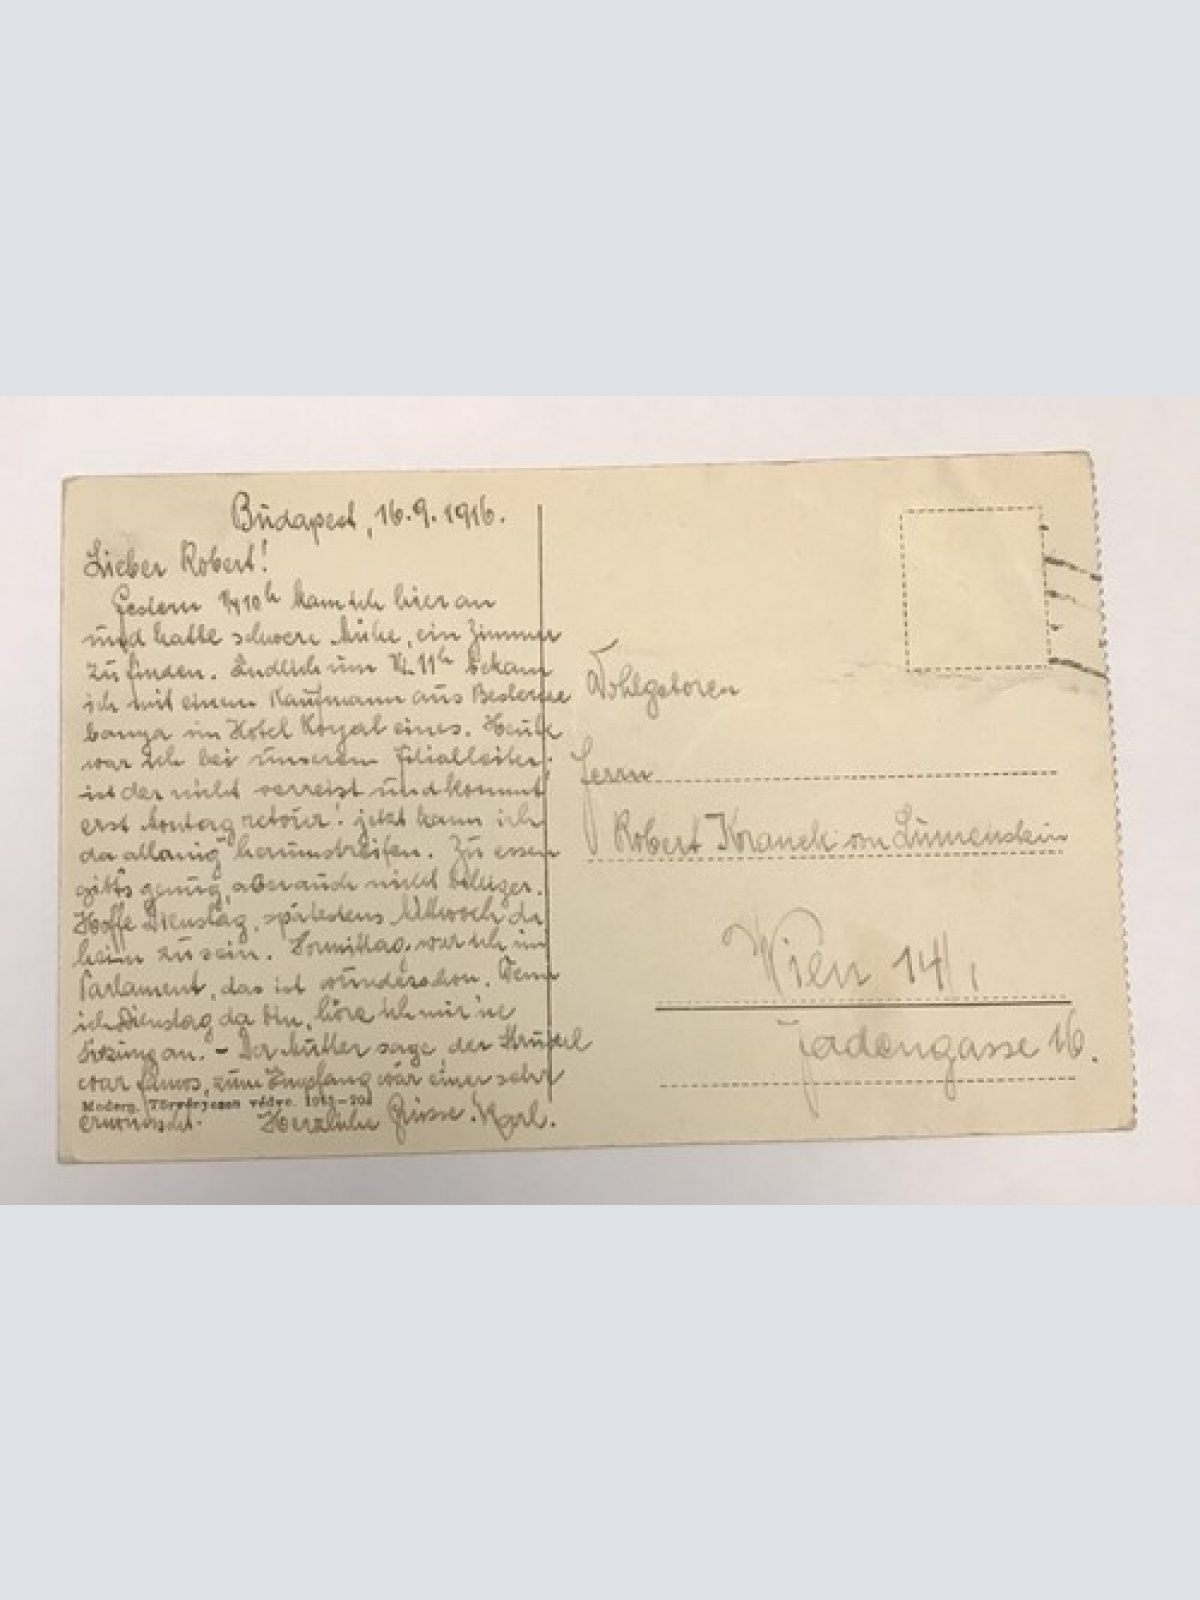 Budapest, 16.9.1916.
Lieber Robert!
Gestern 3/4 10h kam ich hier an
und hatte schwere Mühe, ein Zimmer
zu finden. Endlich um 1/2 11h bekam
ich mit einem Kaufmann aus Besterce
banya im Hotel Royal eines. Heute
war ich bei unserem Filialleiter,
ist der nicht verreist und kommt
erst Montag retour! jetzt kann ich
da allanig herumstreifen. Zu essen
gibt's genug, aber auch nicht billiger.
Hoffe Dienstag, spätestens Mittwoch da
heim zu sein. Vormittag war ich im
Parlament, das ist wunderschön. Wenn
ich Dienstag da bin, höre ich mir 'ne
Sitzung an. – Der Mutter sage, der Strudel
war famos, zum Empfang wär einer sehr
erwünscht. Herzliche Grüsse. Karl.
Modern. Törvényesen védve. 1915-20
Wohlgeboren
Herrn
Robert Kranek von Lünenstein
Wien 14/1
Jadengasse 16.